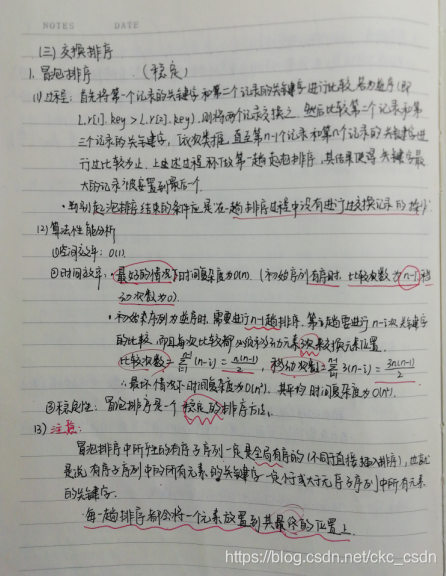 NOTES DATE
(三) 交换排序
1. 冒泡排序 (稳定)
(1) 过程: 首先将第一个记录的关键字和第二个记录的关键字进行比较, 若为逆序(即
L.r[1].key > L.r[2].key), 则将两个记录交换之, 然后比较第二个记录和第
三个记录的关键字, 依次类推, 直至第n-1个记录和第n个记录的关键字进
行过比较为止. 上述过程称作第一趟起泡排序, 其结果使得关键字最
大的记录被安置到最后一个
·判别起泡排序结束的条件应是"在一趟排序过程中没有进行过交换记录的操作"
(2) 算法性能分析
①空间效率: O(1).
②时间效率: ·最好的情况下时间复杂度为O(n). (初始序列有序时, 比较次数为n-1, 移
动次数为0).
·初始序列为逆序时, 需要进行n-1趟排序, 第i趟要进行n-i次关键字
的比较, 而且每次比较都必须移动元素3次来交换元素位置.
比较次数=∑(n-i)=n(n-1)/2, 移动次数=∑3(n-i)=3n(n-1)/2
∴最坏情况下时间复杂度为O(n²), 其平均时间复杂度为O(n²).
③稳定性: 冒泡排序是一个稳定的排序方法.
(3) 注意:
冒泡排序中所产生的有序子序列一定是全局有序的(不同于直接插入排序), 也就
是说有序子序列中的所有元素的关键字一定小于或大于无序子序列中所有元素
的关键字.
·每一趟排序都会将一个元素放置到其最终的位置上.
https://blog.csdn.net/ckc_csdn